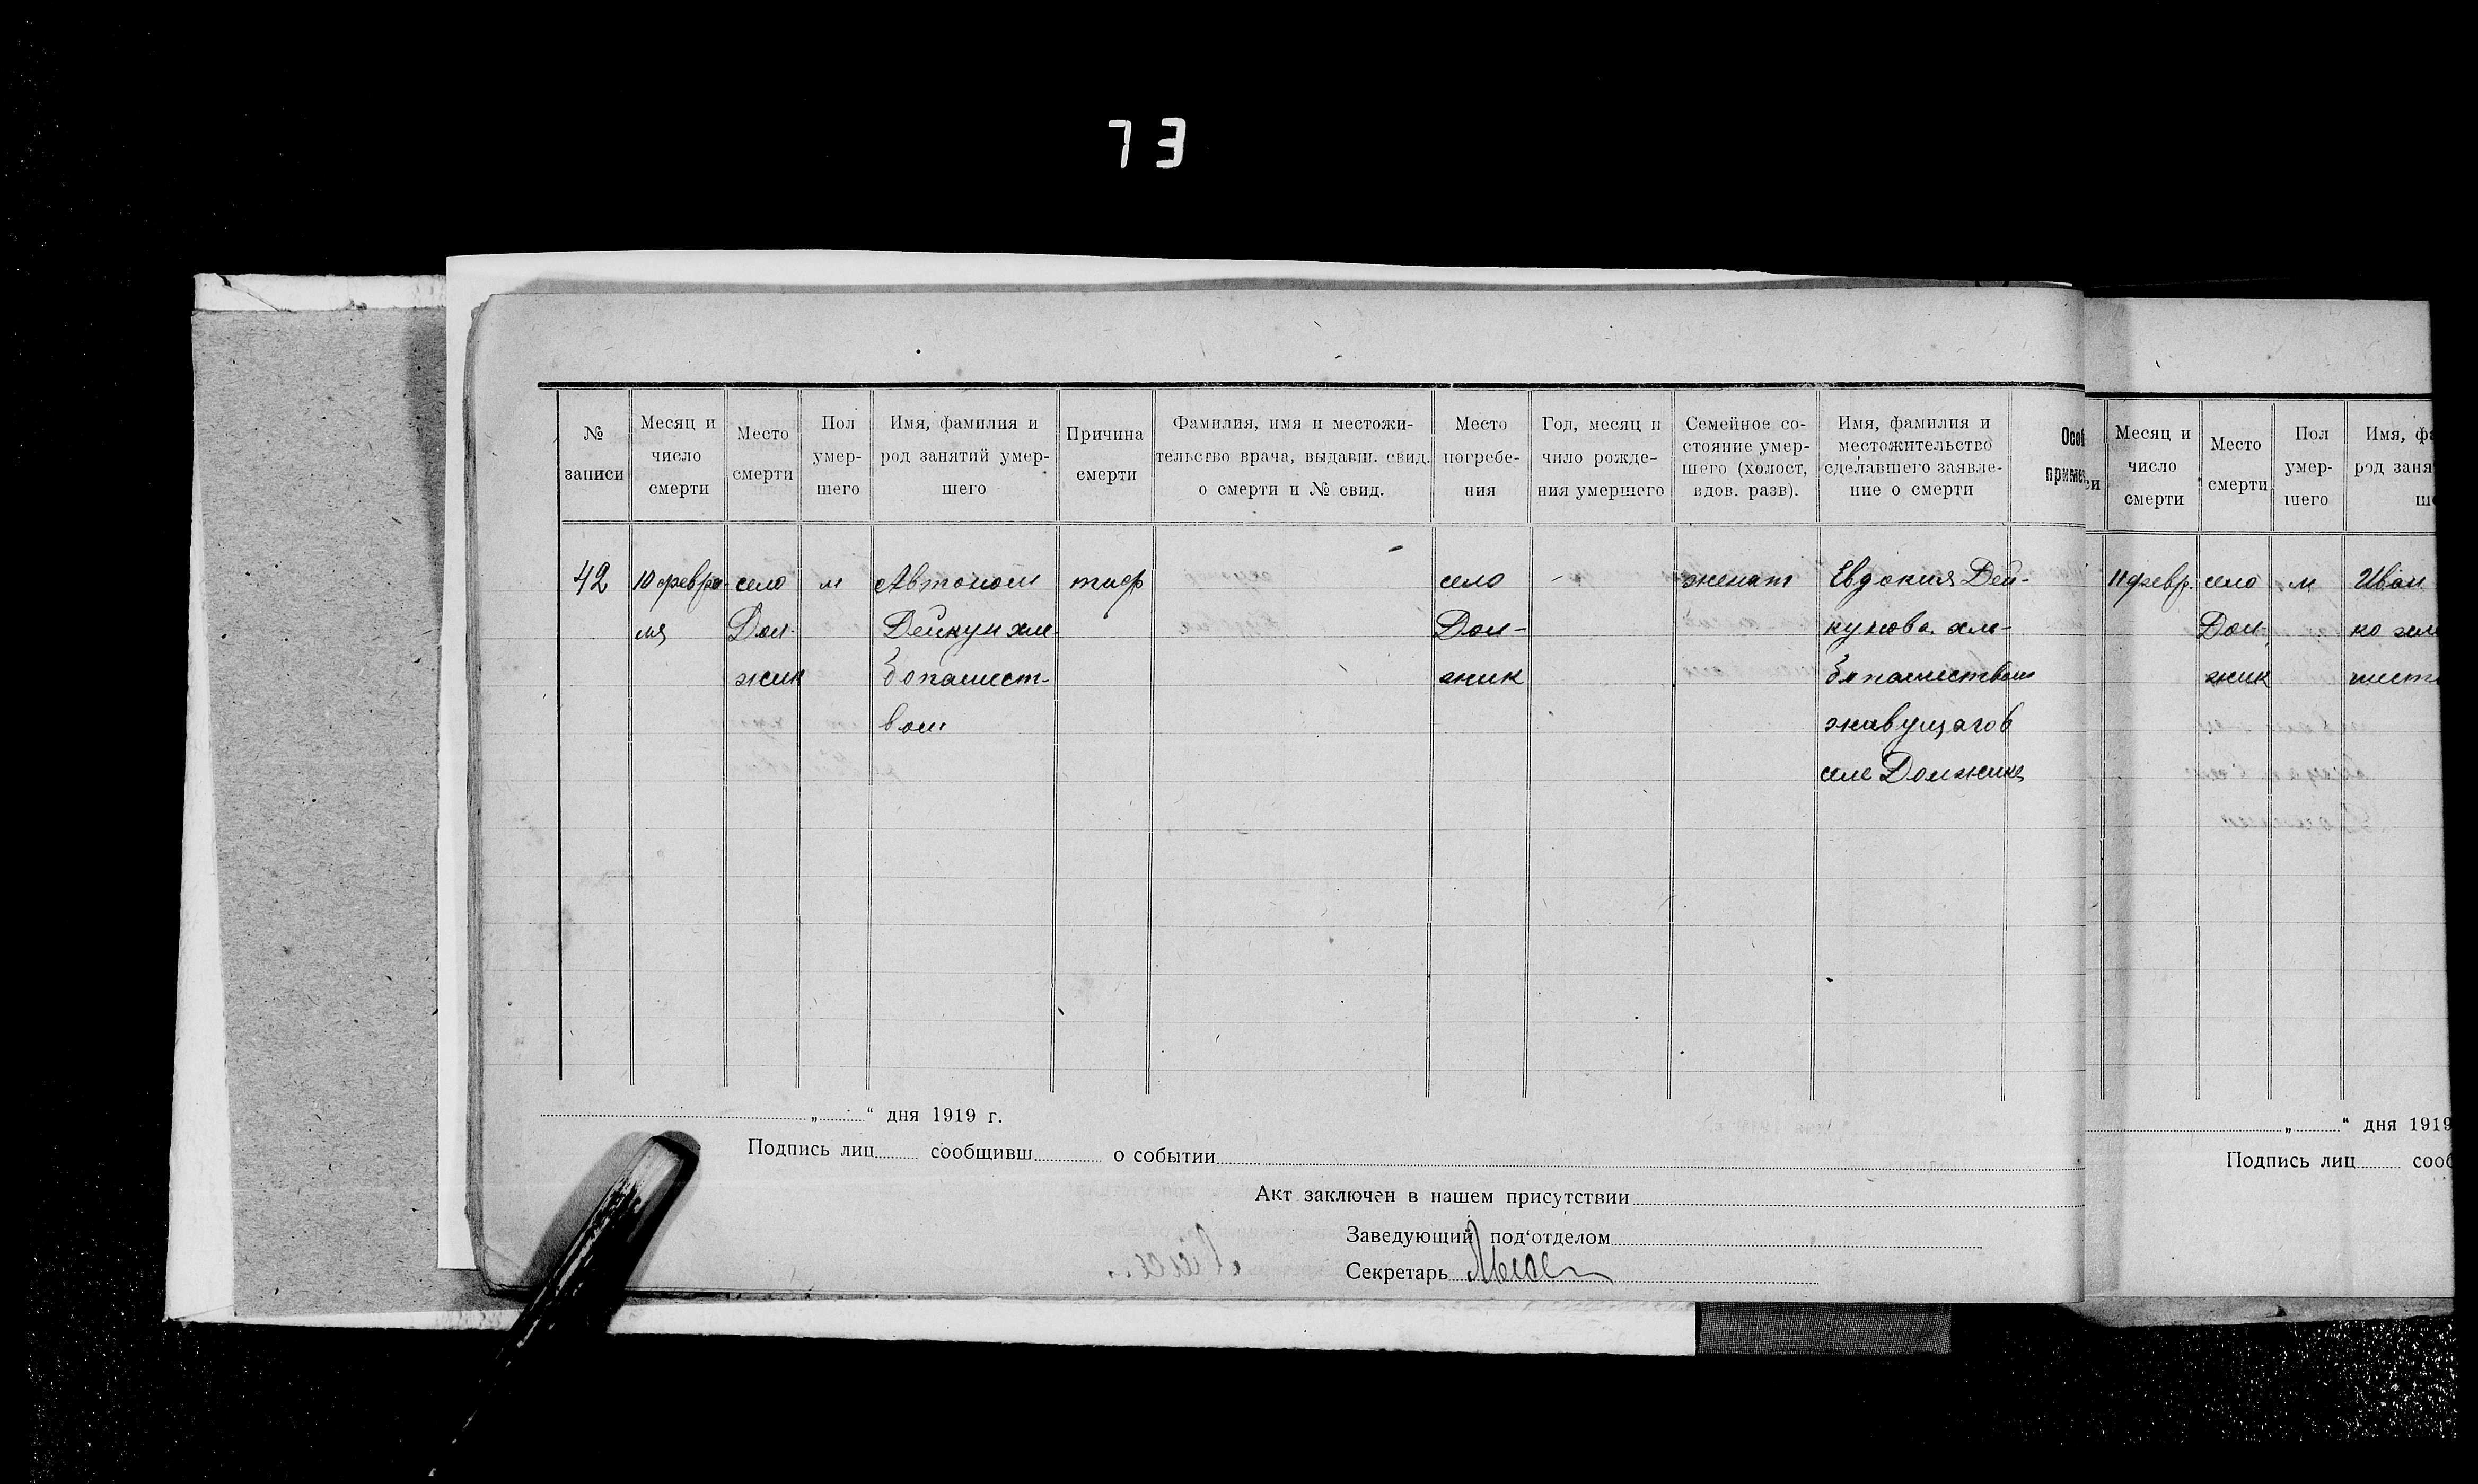 73
№ записи
Месяц и число смерти
Место смерти
Пол умер-
шего
Имя, фамилия и
род занятий умер-
шего
Причина смерти
Фамилия, имя и местожи-
тельство врача, выдавш. свид.
о смерти и № свид.
Место
погребе-
ния
Год, месяц и
чило рожде-
ния умершего
Семейное со-
стояние умер-
шего (холост,
вдов. разв).
Имя, фамилия и
местожительство
сделавшего заявле-
ние о смерти
Особ
42
10 февра-
ля
село
Дол-
жик
м
Автоном
Дейкун хле-
бопашест-
вом
тиф
село
Дол-
жик
женат
Евдокия Дей-
кунова хле-
бопашеством
живущаго в
селе Должике
„ “ дня 1919 г.
Подпись лиц сообщивш о событии
Акт заключен в нашем присутствии
Заведующий под'отделом
Секретарь
Месяц и
число
смерти
Место
смерти
Пол
умер-
шего
Имя, фа
род заня
ше
11 февр.
село
Дол-
жик
м
Иван
„ “ дня 1919
Подпись лиц сооб